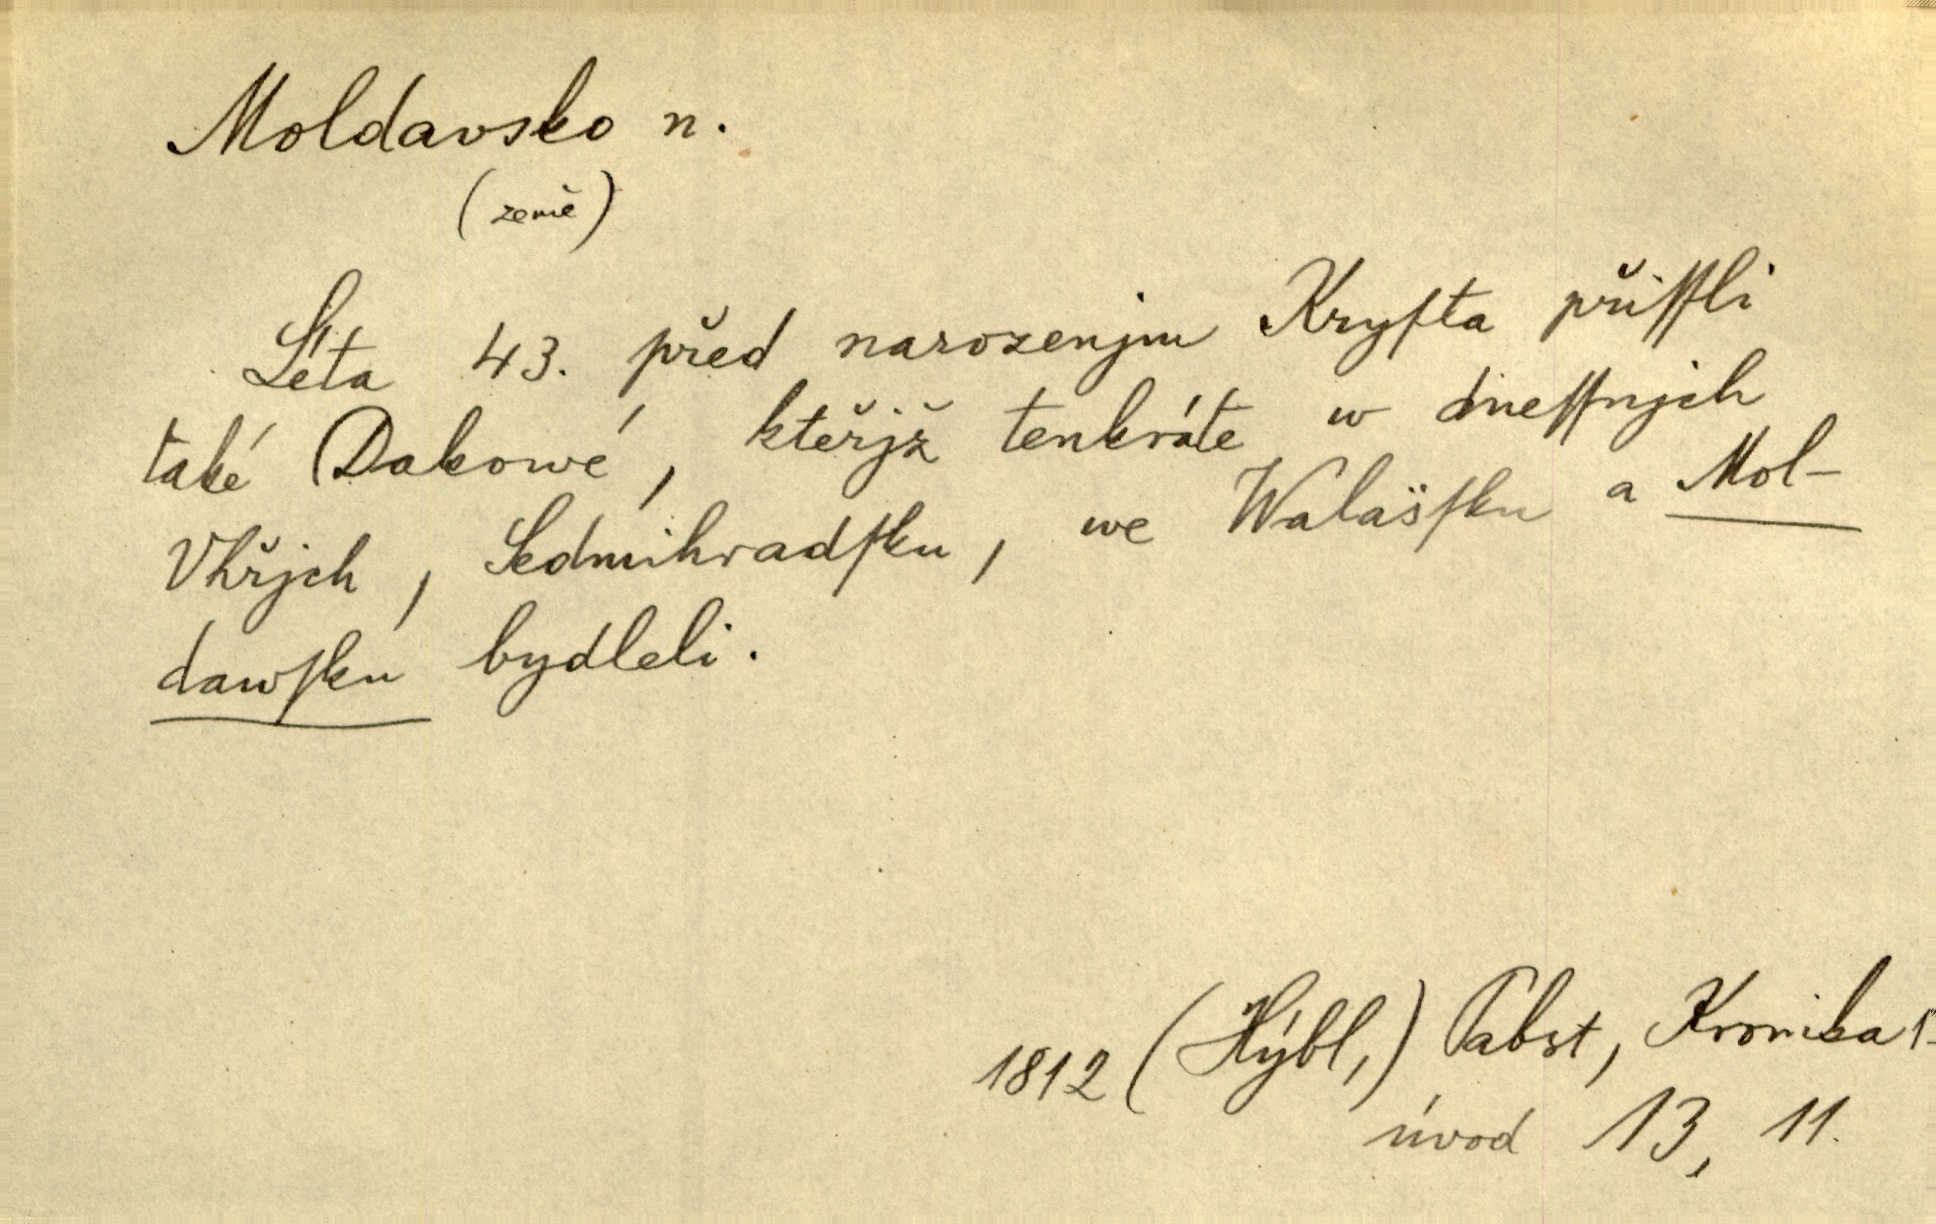 Moldavsko n.
(země)
Léta 43. před narozenjm Kryſta přiſſli
také Dakowé, kteřjž tenkráte w dneſſnjch
Vhřjch, Sedmihradſku, we Walašſku a Mol-
dawſku bydleli.
1812 (Hýbl,) Pabst, Kronika 1-
úvod 13, 11.